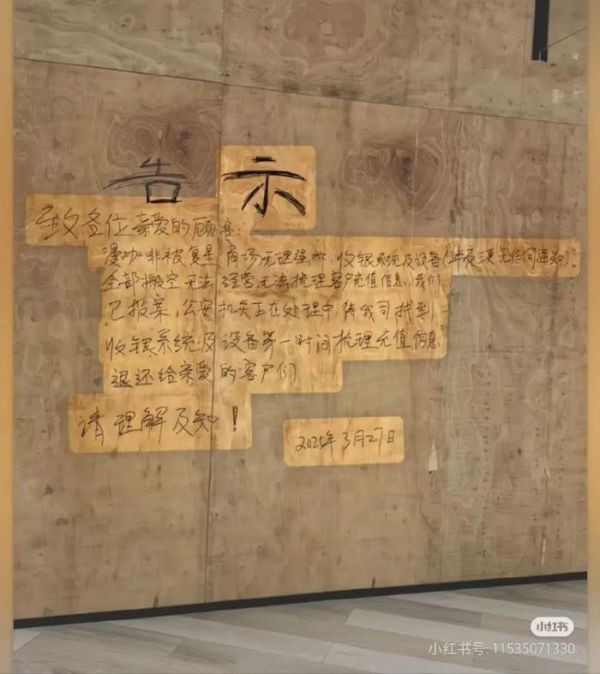 告示
致各位亲爱的顾客:
漫咖啡被复星商场无理强拆,收银系统及设备(半夜三更无任何通知)
全部搬空无法经营无法梳理客户充值信息,我们
已报案,公安机关正在处理中,待我司找到
收银系统及设备第一时间梳理充值信息
退还给亲爱的客户们
请理解及知!
2025年3月27日
小红书
小红书号:11535071330